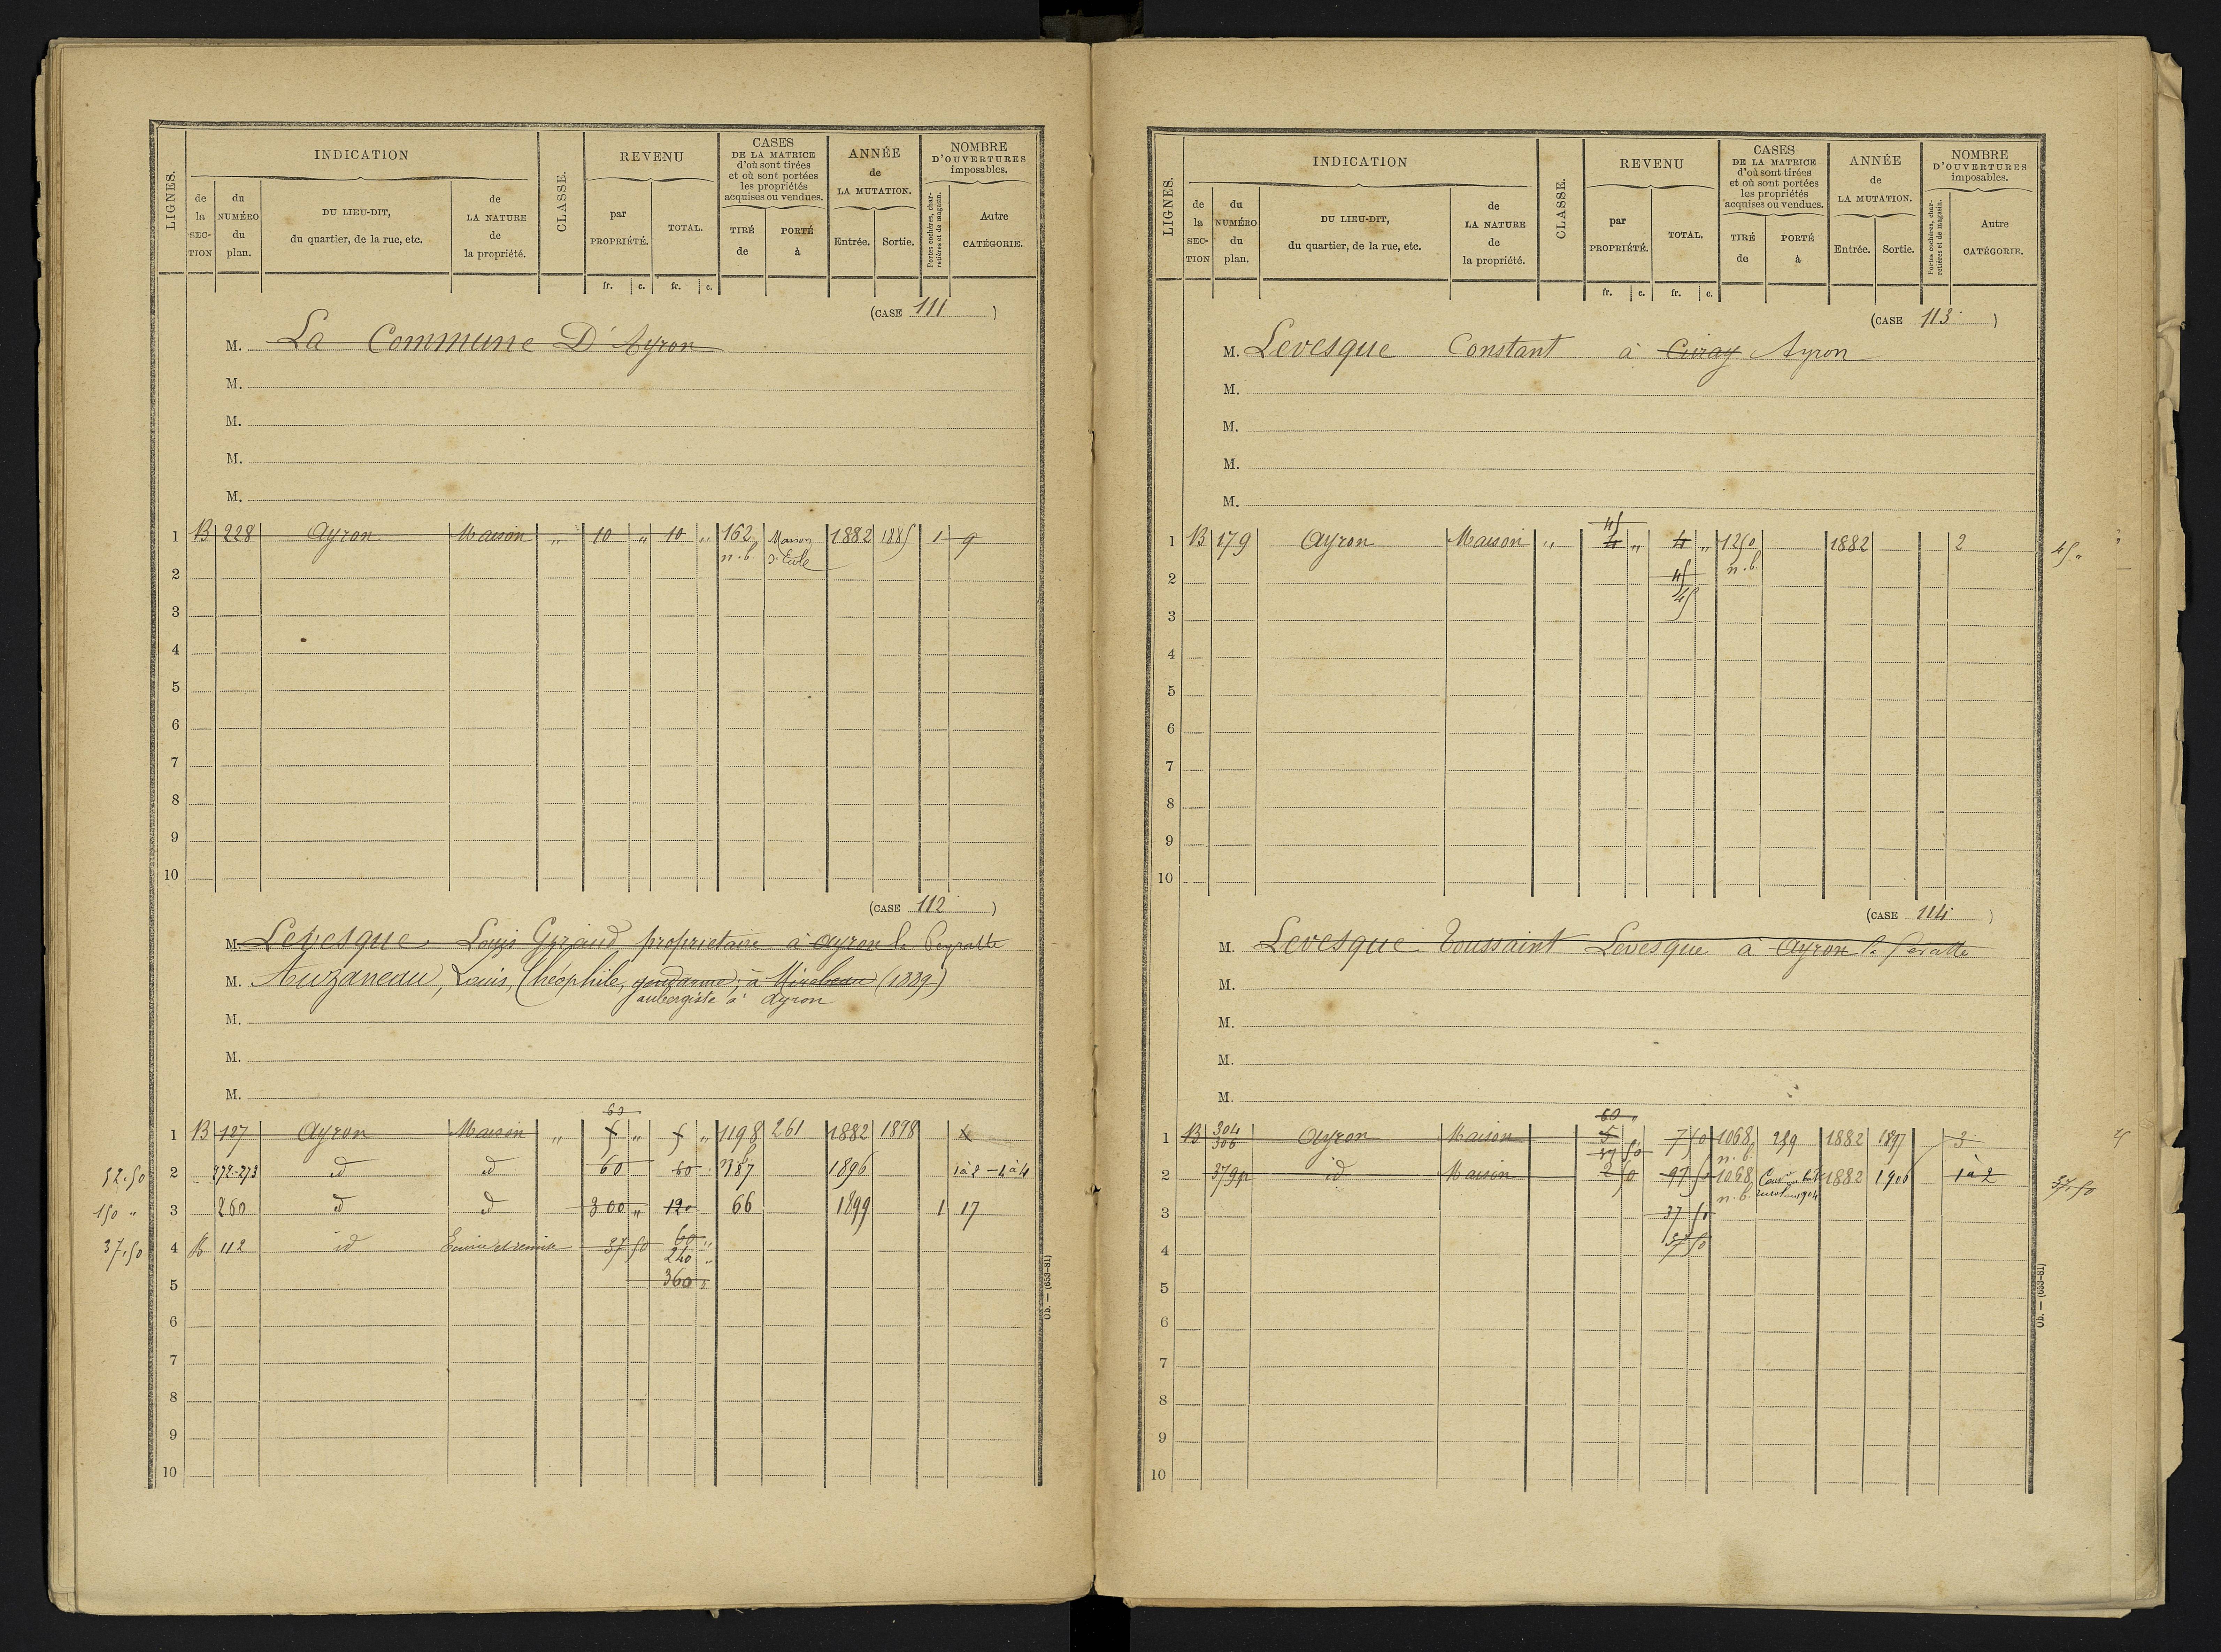 LIGNES. INDICATION CLASSE. REVENU CASES DE LA MATRICE d'où sont tirées et où sont portées les propriétés acquises ou vendues. ANNÉE de LA MUTATION. NOMBRE D'OUVERTURES imposables.
de la SECTION du NUMÉRO du plan. DU LIEU-DIT, du quartier, de la rue, etc. de LA NATURE de la propriété. par PROPRIÉTÉ. TOTAL. TIRÉ de PORTÉ à Entrée. Sortie. Portes cochères, charretières et de magasin. Autre CATÉGORIE.
fr. c. fr. c.
(CASE 111)
M. La Commune D'Ayron
M.
M.
M.
M.
1 B 228 Ayron Maison " 10 " 10 " 162 n.b. Maison d'Ecole 1882 1885 1 9
2
3
4
5
6
7
8
9
10
(CASE 112)
M. Levesque Louis Giraud propriétaire à Ayron
M. Auzaneau, Louis, Théophile, gendarme, à Mirebeau (1889)
aubergiste à Ayron
M.
M.
M.
60
1 B 127 Ayron Maison " " " 1198 261 1882 1898
52.50 2 272-273 id id 60 60 387 1896 1 à 2 - 4 à 4
150 " 3 260 id id 300 " 120 66 1899 1 17
37,50 4 112 id Ecurie et remise 37 50 60 "
240 "
5 360 "
6
7
8
9
10
Ob. — (653-81)
LIGNES. INDICATION CLASSE. REVENU CASES DE LA MATRICE d'où sont tirées et où sont portées les propriétés acquises ou vendues. ANNÉE de LA MUTATION. NOMBRE D'OUVERTURES imposables.
de la SECTION du NUMÉRO du plan. DU LIEU-DIT, du quartier, de la rue, etc. de LA NATURE de la propriété. par PROPRIÉTÉ. TOTAL. TIRÉ de PORTÉ à Entrée. Sortie. Portes cochères, charretières et de magasin. Autre CATÉGORIE.
fr. c. fr. c.
(CASE 113)
M. Levesque Constant à Ayron
M.
M.
M.
M.
45
1 B 179 Ayron Maison " 4 " 4 " 1250 n.b. 1882 2 45 "
2 45
3 45
4
5
6
7
8
9
10
(CASE 114)
M. Levesque Toussaint Levesque à Ayron
M.
M.
M.
M.
60 "
1 B 304 306 Ayron Maison 5 7 50 1068 n.b. 239 1882 1897 3
2 379p id Maison 2 50 97 50 1068 n.b. 1882 1906 1 à 2 37,50
3 37 50
4 37 50
5
6
7
8
9
10
Ob. — (653-81)